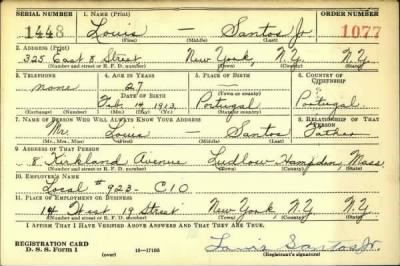 SERIAL NUMBER 1. NAME (Print) ORDER NUMBER
1448 Louis — Santos Jr. 1077
(First) (Middle) (Last)
2. ADDRESS (Print)
325 East 8 Street New York, N.Y. N.Y.
(Number and street or R. F. D. number) (Town) (County) (State)
3. TELEPHONE 4. AGE IN YEARS 5. PLACE OF BIRTH 6. COUNTRY OF CITIZENSHIP
none 27 —
DATE OF BIRTH (Town or county)
Feb. 14, 1913. Portugal Portugal
(Exchange) (Number) (Mo.) (Day) (Yr.) (State or country)
7. NAME OF PERSON WHO WILL ALWAYS KNOW YOUR ADDRESS 8. RELATIONSHIP OF THAT PERSON
Mr. Louis — Santos Father
(Mr., Mrs., Miss) (First) (Middle) (Last)
9. ADDRESS OF THAT PERSON
8 Kirkland Avenue Ludlow-Hampden, Mass
(Number and street or R. F. D. number) (Town) (County) (State)
10. EMPLOYER'S NAME
Local #923- C.I.O.
11. PLACE OF EMPLOYMENT OR BUSINESS
14 West 19 Street New York, N.Y. N.Y.
(Number and street or R. F. D. number) (Town) (County) (State)
I AFFIRM THAT I HAVE VERIFIED ABOVE ANSWERS AND THAT THEY ARE TRUE.
REGISTRATION CARD
D. S. S. Form 1 16—17105 Louis Santos Jr.
(over) (Registrant's signature)